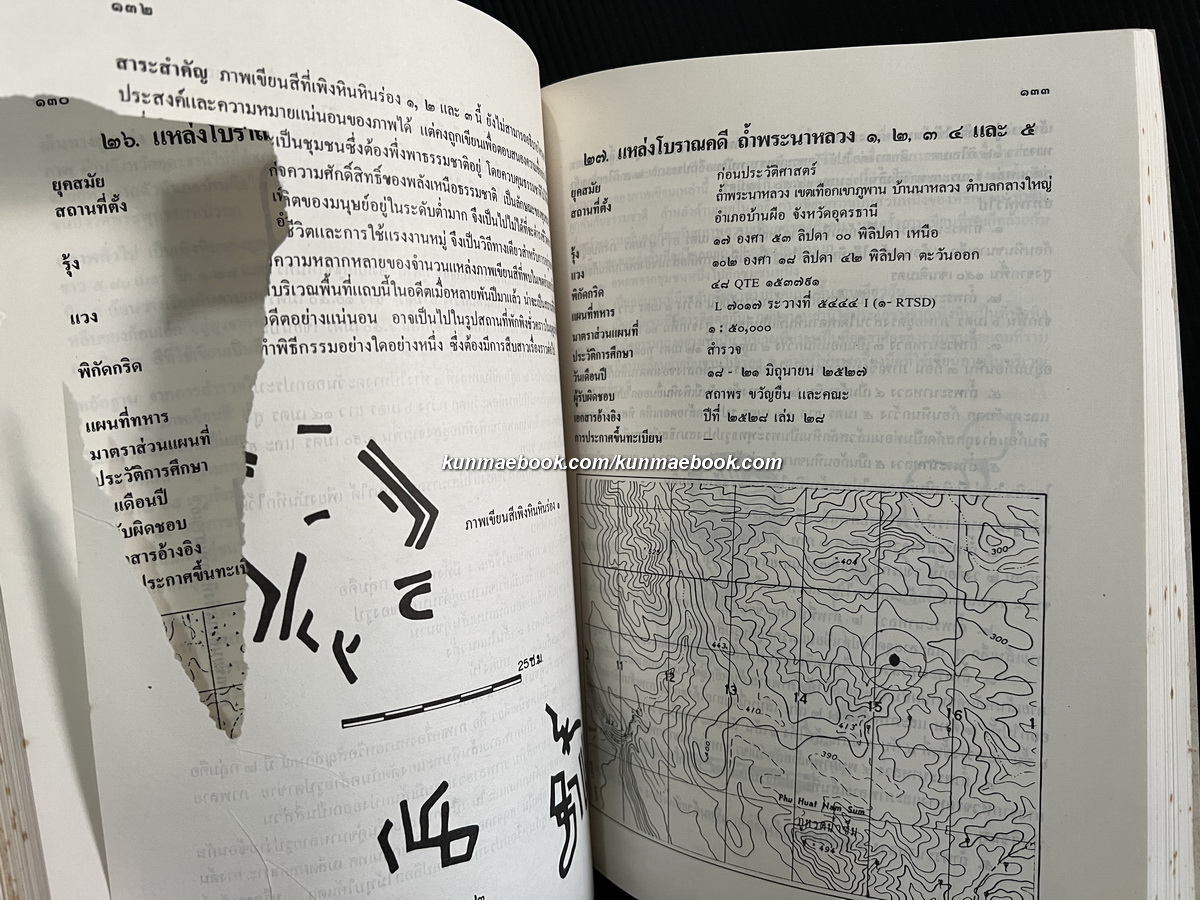 ๑๓๒
สาระสำคัญ ภาพเขียนสีที่เพิงหินหินร่อง ๑, ๒ และ ๓ นี้ ยังไม่สามารถ
ประสงค์และความหมายแน่นอนของภาพได้ แต่คงถูกเขียนเพื่อตอบสนอง
เป็นชุมชนซึ่งต้องพึ่งพาธรรมชาติอยู่ โดยควบคุม
ความศักดิ์สิทธิ์ของพลังเหนือธรรมชาติ
ของมนุษย์อยู่ในระดับต่ำมาก จึงเป็นไปไม่ได้ที่จะ
ชีวิตและการใช้แรงงานหมู่ จึงเป็นวิถีทางเดียว
ความหลากหลายของจำนวนแหล่งภาพเขียนสีที่พบ
บริเวณพื้นที่แถบนี้ในอดีตเมื่อหลายพันปีมาแล้ว
อย่างแน่นอน อาจเป็นไปในรูปสถานที่พักพิงชั่วคราว
ทำพิธีกรรมอย่างใดอย่างหนึ่ง ซึ่งต้องมีการสืบสาวเรื่องราว
ภาพเขียนสีเพิงหินหินร่อง ๑
25 ซ.ม.
๑๓๐
๒๖. แหล่งโบราณ
ยุคสมัย
สถานที่ตั้ง
รุ้ง
แวง
พิกัดกริด
แผนที่ทหาร
มาตราส่วนแผนที่
ประวัติการศึกษา
เดือนปี
รับผิดชอบ
สารอ้างอิง
ประกาศขึ้นทะเบี
๑๓๓
๒๗. แหล่งโบราณคดี ถ้ำพระนาหลวง ๑, ๒, ๓ ๔ และ ๕
ยุคสมัย ก่อนประวัติศาสตร์
สถานที่ตั้ง ถ้ำพระนาหลวง เขตเทือกเขาภูพาน บ้านนาหลวง ตำบลกลางใหญ่
อำเภอบ้านผือ จังหวัดอุดรธานี
รุ้ง ๑๗ องศา ๕๓ ลิปดา ๐๐ พิลิปดา เหนือ
แวง ๑๐๒ องศา ๑๘ ลิปดา ๔๒ พิลิปดา ตะวันออก
พิกัดกริด ๔๘ QTE ๑๕๓๗๙๑
แผนที่ทหาร L ๗๐๑๗ ระวางที่ ๕๔๔๔ I (๑- RTSD)
มาตราส่วนแผนที่ ๑ : ๕๐,๐๐๐
ประวัติการศึกษา สำรวจ
วันเดือนปี ๑๘ - ๒๑ มิถุนายน ๒๕๒๗
ผู้รับผิดชอบ สถาพร ขวัญยืน และคณะ
เอกสารอ้างอิง ปีที่ ๒๕๒๘ เล่ม ๒๘
การประกาศขึ้นทะเบียน –
300
404
300
443
11
12
13
14
15
16
410
413
390
Phu Huat Nam Sum
494
kunmaebook.com/kunmaebook.com